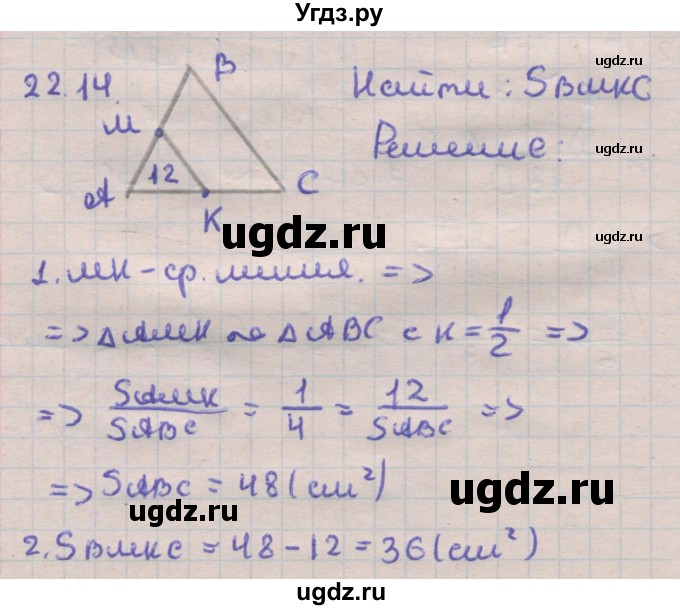 Угдз.ру
22.14.
B
M
A
12
K
C
Найти: SBMKC
Решение:
ugdz.ru
1. MK - ср. линия. =>
=> △AMK ~ △ABC с K = 1/2 =>
=> SAMK/SABC = 1/4 = 12/SABC =>
=> SABC = 48 (см²)
ugdz.ru
ugdz.ru
2. SBMKC = 48 - 12 = 36 (см²)
ugdz.ru